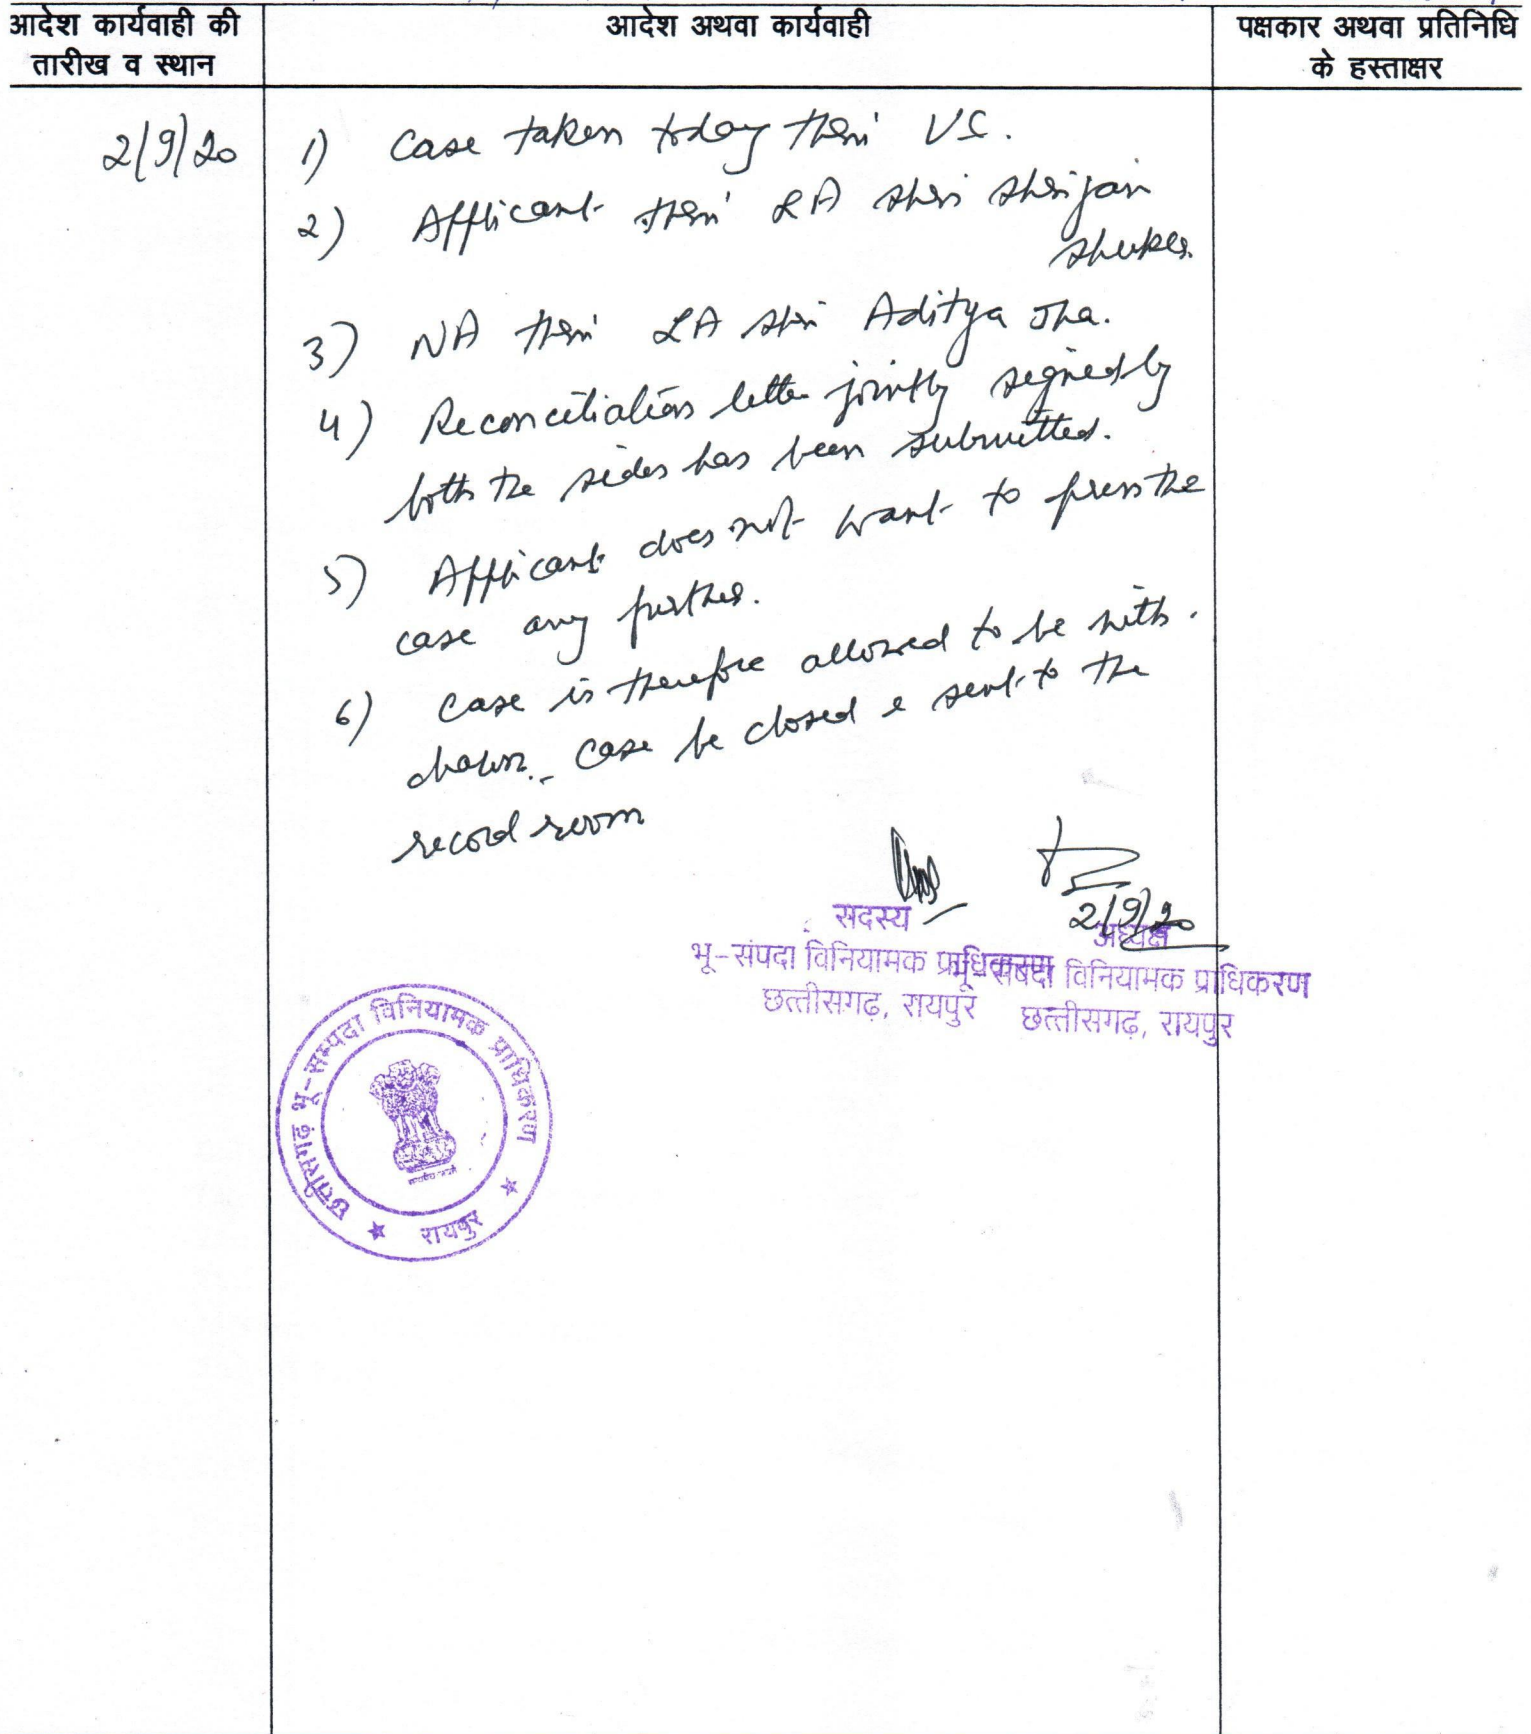 आदेश कार्यवाही की
तारीख व स्थान
आदेश अथवा कार्यवाही
पक्षकार अथवा प्रतिनिधि
के हस्ताक्षर
2/9/20
1) Case taken today thru' VC.
2) Applicant thru' LA Shri Shrijan
Shukla.
3) NA thru' LA Shri Aditya Jha.
4) Reconciliation letter jointly signed by
both the sides has been submitted.
5) Applicant does not want to press the
case any further.
6) Case is therefore allowed to be with-
drawn. Case be closed & sent to the
record room
2/9/20
सदस्य
भू-संपदा विनियामक प्राधिकरण
छत्तीसगढ़, रायपुर
अध्यक्ष
भू-संपदा विनियामक प्राधिकरण
छत्तीसगढ़, रायपुर
छत्तीसगढ़ भू-सम्पदा विनियामक प्राधिकरण
★ रायपुर ★